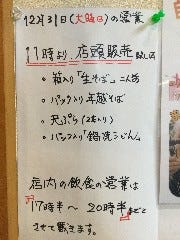 12月31日(大晦日)の営業
11時より、店頭販売
・箱入り「生そば」二人前
・パック入り年越そば
・天ぷら(2本入り)
・パック入り「鍋焼うどん」
店内の飲食の営業は
17時半〜20時半までと
させて戴きます。